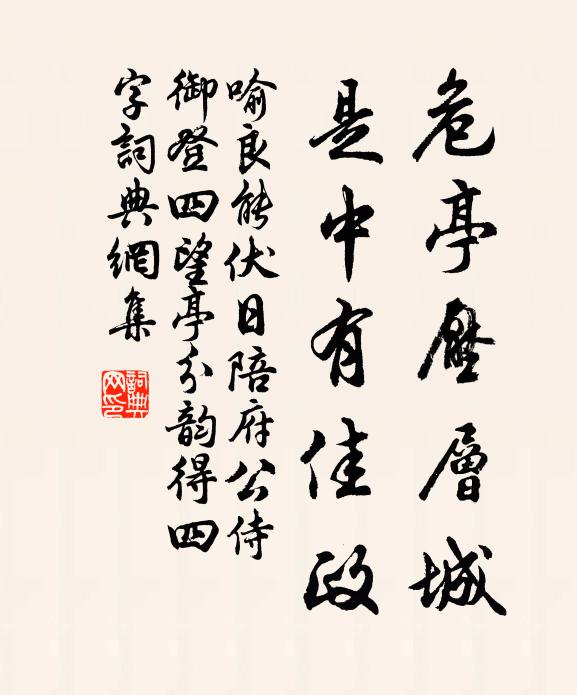 危亭壓層城
是中有佳政
喻良能伏日陪府公侍
御登四望亭分韵得四
字詞典網集
詞典
网印